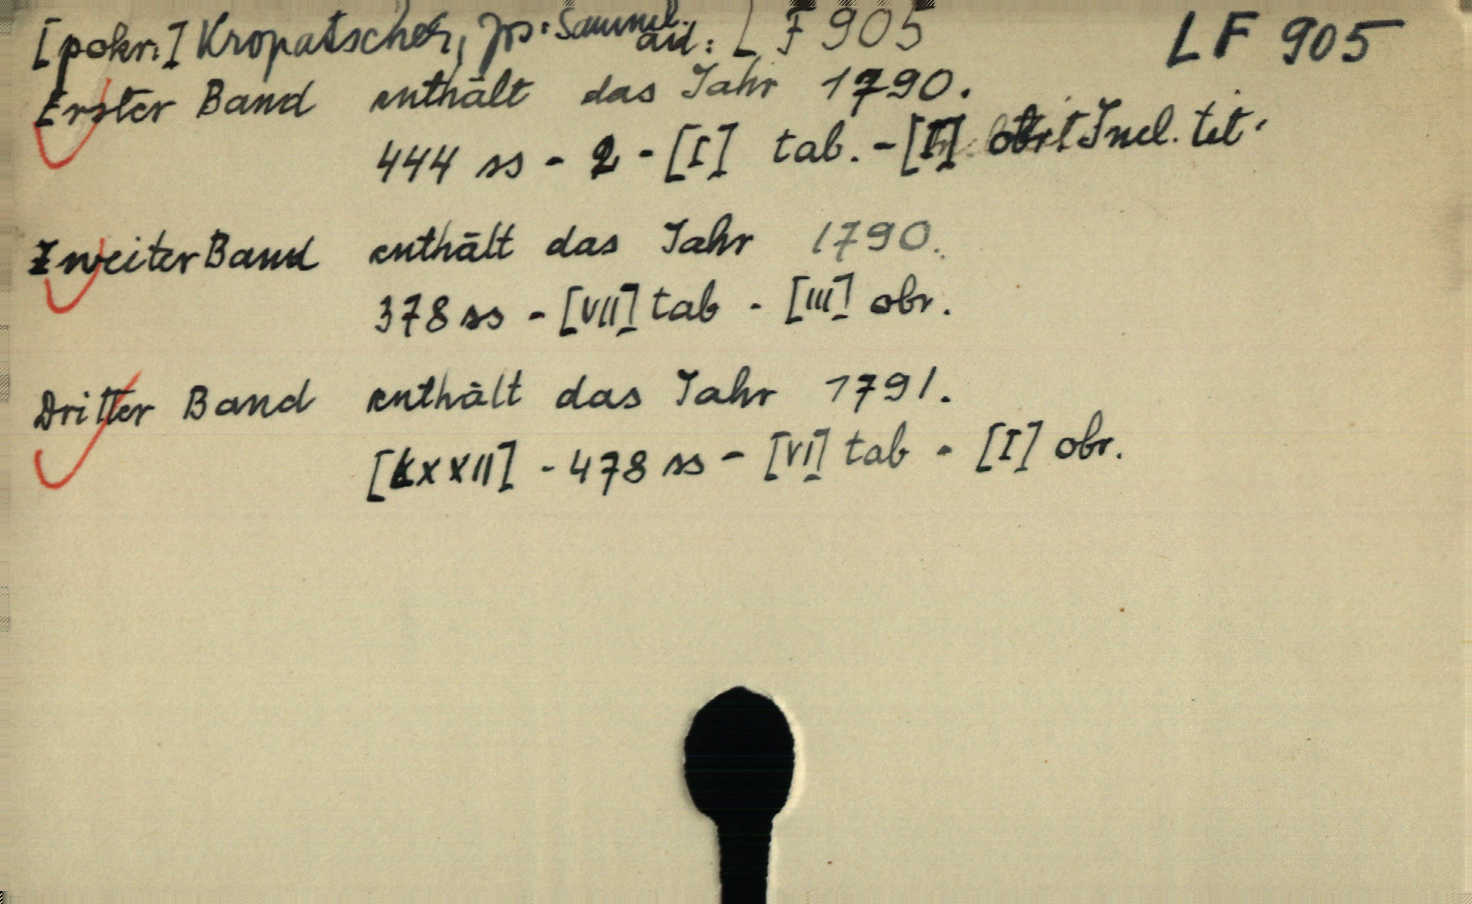 [pokr.] Kropatschek, Jos: Samml. LF 905 LF 905
Erster Band enthält das Jahr 1790.
444 ss - 2 - [I] tab. - [I] obr. Incl. tit.
Zweiter Band enthält das Jahr 1790.
378 ss - [VII] tab - [III] obr.
Dritter Band enthält das Jahr 1791.
[LXXII] - 478 ss - [VI] tab - [I] obr.